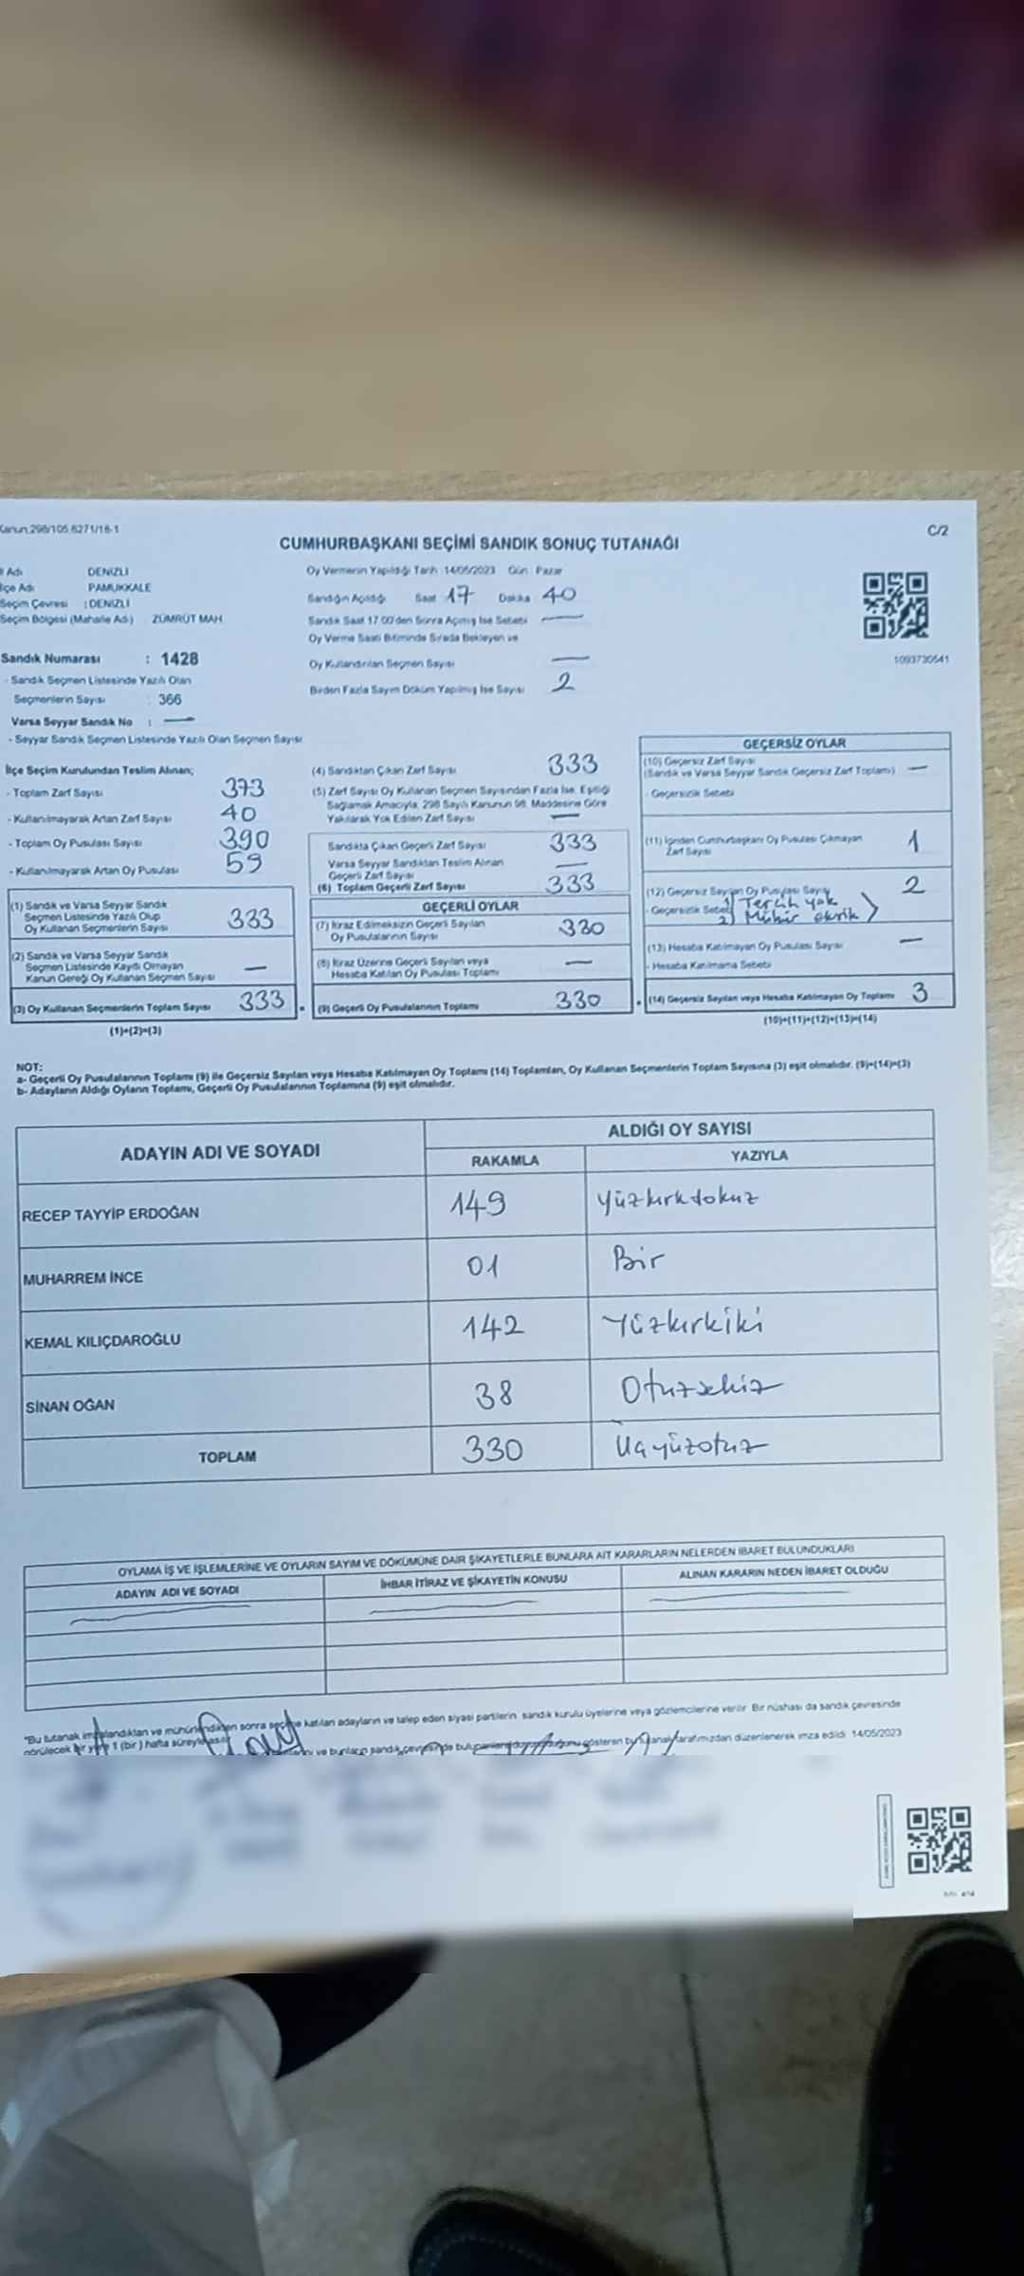 Kanun 298/105 6271/18-1
C/2
CUMHURBAŞKANI SEÇİMİ SANDIK SONUÇ TUTANAĞI
İl Adı DENİZLİ
İlçe Adı PAMUKKALE
Seçim Çevresi : DENİZLİ
Seçim Bölgesi (Mahalle Adı) ZÜMRÜT MAH.
Sandık Numarası : 1428
- Sandık Seçmen Listesinde Yazılı Olan
Seçmenlerin Sayısı : 366
Varsa Seyyar Sandık No : —
- Seyyar Sandık Seçmen Listesinde Yazılı Olan Seçmen Sayısı
Oy Vermenin Yapıldığı Tarih :14/05/2023 Gün : Pazar
Sandığın Açıldığı Saat 17 Dakika 40
Sandık Saat 17.00'den Sonra Açılmış İse Sebebi —
Oy Verme Saati Bitiminde Sırada Bekleyen ve
Oy Kullandırılan Seçmen Sayısı —
Birden Fazla Sayım Döküm Yapılmış İse Sayısı 2
1093730541
İlçe Seçim Kurulundan Teslim Alınan;
- Toplam Zarf Sayısı 373
- Kullanılmayarak Artan Zarf Sayısı 40
- Toplam Oy Pusulası Sayısı 390
- Kullanılmayarak Artan Oy Pusulası 59
(1) Sandık ve Varsa Seyyar Sandık
Seçmen Listesinde Yazılı Olup
Oy Kullanan Seçmenlerin Sayısı 333
(2) Sandık ve Varsa Seyyar Sandık
Seçmen Listesinde Kaydı Olmayan
Kanun Gereği Oy Kullanan Seçmen Sayısı —
(3) Oy Kullanan Seçmenlerin Toplam Sayısı 333
(1)+(2)=(3)
(4) Sandıktan Çıkan Zarf Sayısı 333
(5) Zarf Sayısı Oy Kullanan Seçmen Sayısından Fazla İse, Eşitliği
Sağlamak Amacıyla, 298 Sayılı Kanunun 98. Maddesine Göre
Yakılarak Yok Edilen Zarf Sayısı —
Sandıkta Çıkan Geçerli Zarf Sayısı 333
Varsa Seyyar Sandıktan Teslim Alınan
Geçerli Zarf Sayısı —
(6) Toplam Geçerli Zarf Sayısı 333
GEÇERLİ OYLAR
(7) İtiraz Edilmeksizin Geçerli Sayılan
Oy Pusulalarının Sayısı 330
(8) İtiraz Üzerine Geçerli Sayılan veya
Hesaba Katılan Oy Pusulası Toplamı —
(9) Geçerli Oy Pusulalarının Toplamı 330
GEÇERSİZ OYLAR
(10) Geçersiz Zarf Sayısı
(Sandık ve Varsa Seyyar Sandık Geçersiz Zarf Toplamı) —
- Geçersizlik Sebebi
(11) İçinden Cumhurbaşkanı Oy Pusulası Çıkmayan
Zarf Sayısı 1
(12) Geçersiz Sayılan Oy Pusulası Sayısı 2
- Geçersizlik Sebebi 1) Tercih yok
2) Mühür eksik
(13) Hesaba Katılmayan Oy Pusulası Sayısı —
- Hesaba Katılmama Sebebi
(14) Geçersiz Sayılan veya Hesaba Katılmayan Oy Toplamı 3
(10)+(11)+(12)+(13)=(14)
NOT:
a- Geçerli Oy Pusulalarının Toplamı (9) ile Geçersiz Sayılan veya Hesaba Katılmayan Oy Toplamı (14) Toplamları, Oy Kullanan Seçmenlerin Toplam Sayısına (3) eşit olmalıdır. (9)+(14)=(3)
b- Adayların Aldığı Oyların Toplamı, Geçerli Oy Pusulalarının Toplamına (9) eşit olmalıdır.
ADAYIN ADI VE SOYADI ALDIĞI OY SAYISI
RAKAMLA YAZIYLA
RECEP TAYYİP ERDOĞAN 149 Yüzkırkdokuz
MUHARREM İNCE 01 Bir
KEMAL KILIÇDAROĞLU 142 Yüzkırkiki
SİNAN OĞAN 38 Otuzsekiz
TOPLAM 330 Üçyüzotuz
OYLAMA İŞ VE İŞLEMLERİNE VE OYLARIN SAYIM VE DÖKÜMÜNE DAİR ŞİKAYETLERLE BUNLARA AİT KARARLARIN NELERDEN İBARET BULUNDUKLARI
ADAYIN ADI VE SOYADI İHBAR İTİRAZ VE ŞİKAYETİN KONUSU ALINAN KARARIN NEDEN İBARET OLDUĞU
"Bu tutanak imzalandıktan ve mühürlendikten sonra seçime katılan adayların ve talep eden siyasi partilerin sandık kurulu üyelerine veya gözlemcilerine verilir. Bir nüshası da sandık çevresinde
görülecek bir yere 1 (bir) hafta süreyle asılır. ve bunların sandık çevresinde gösteren bu tutanak tarafımızdan düzenlenerek imza edildi. 14/05/2023